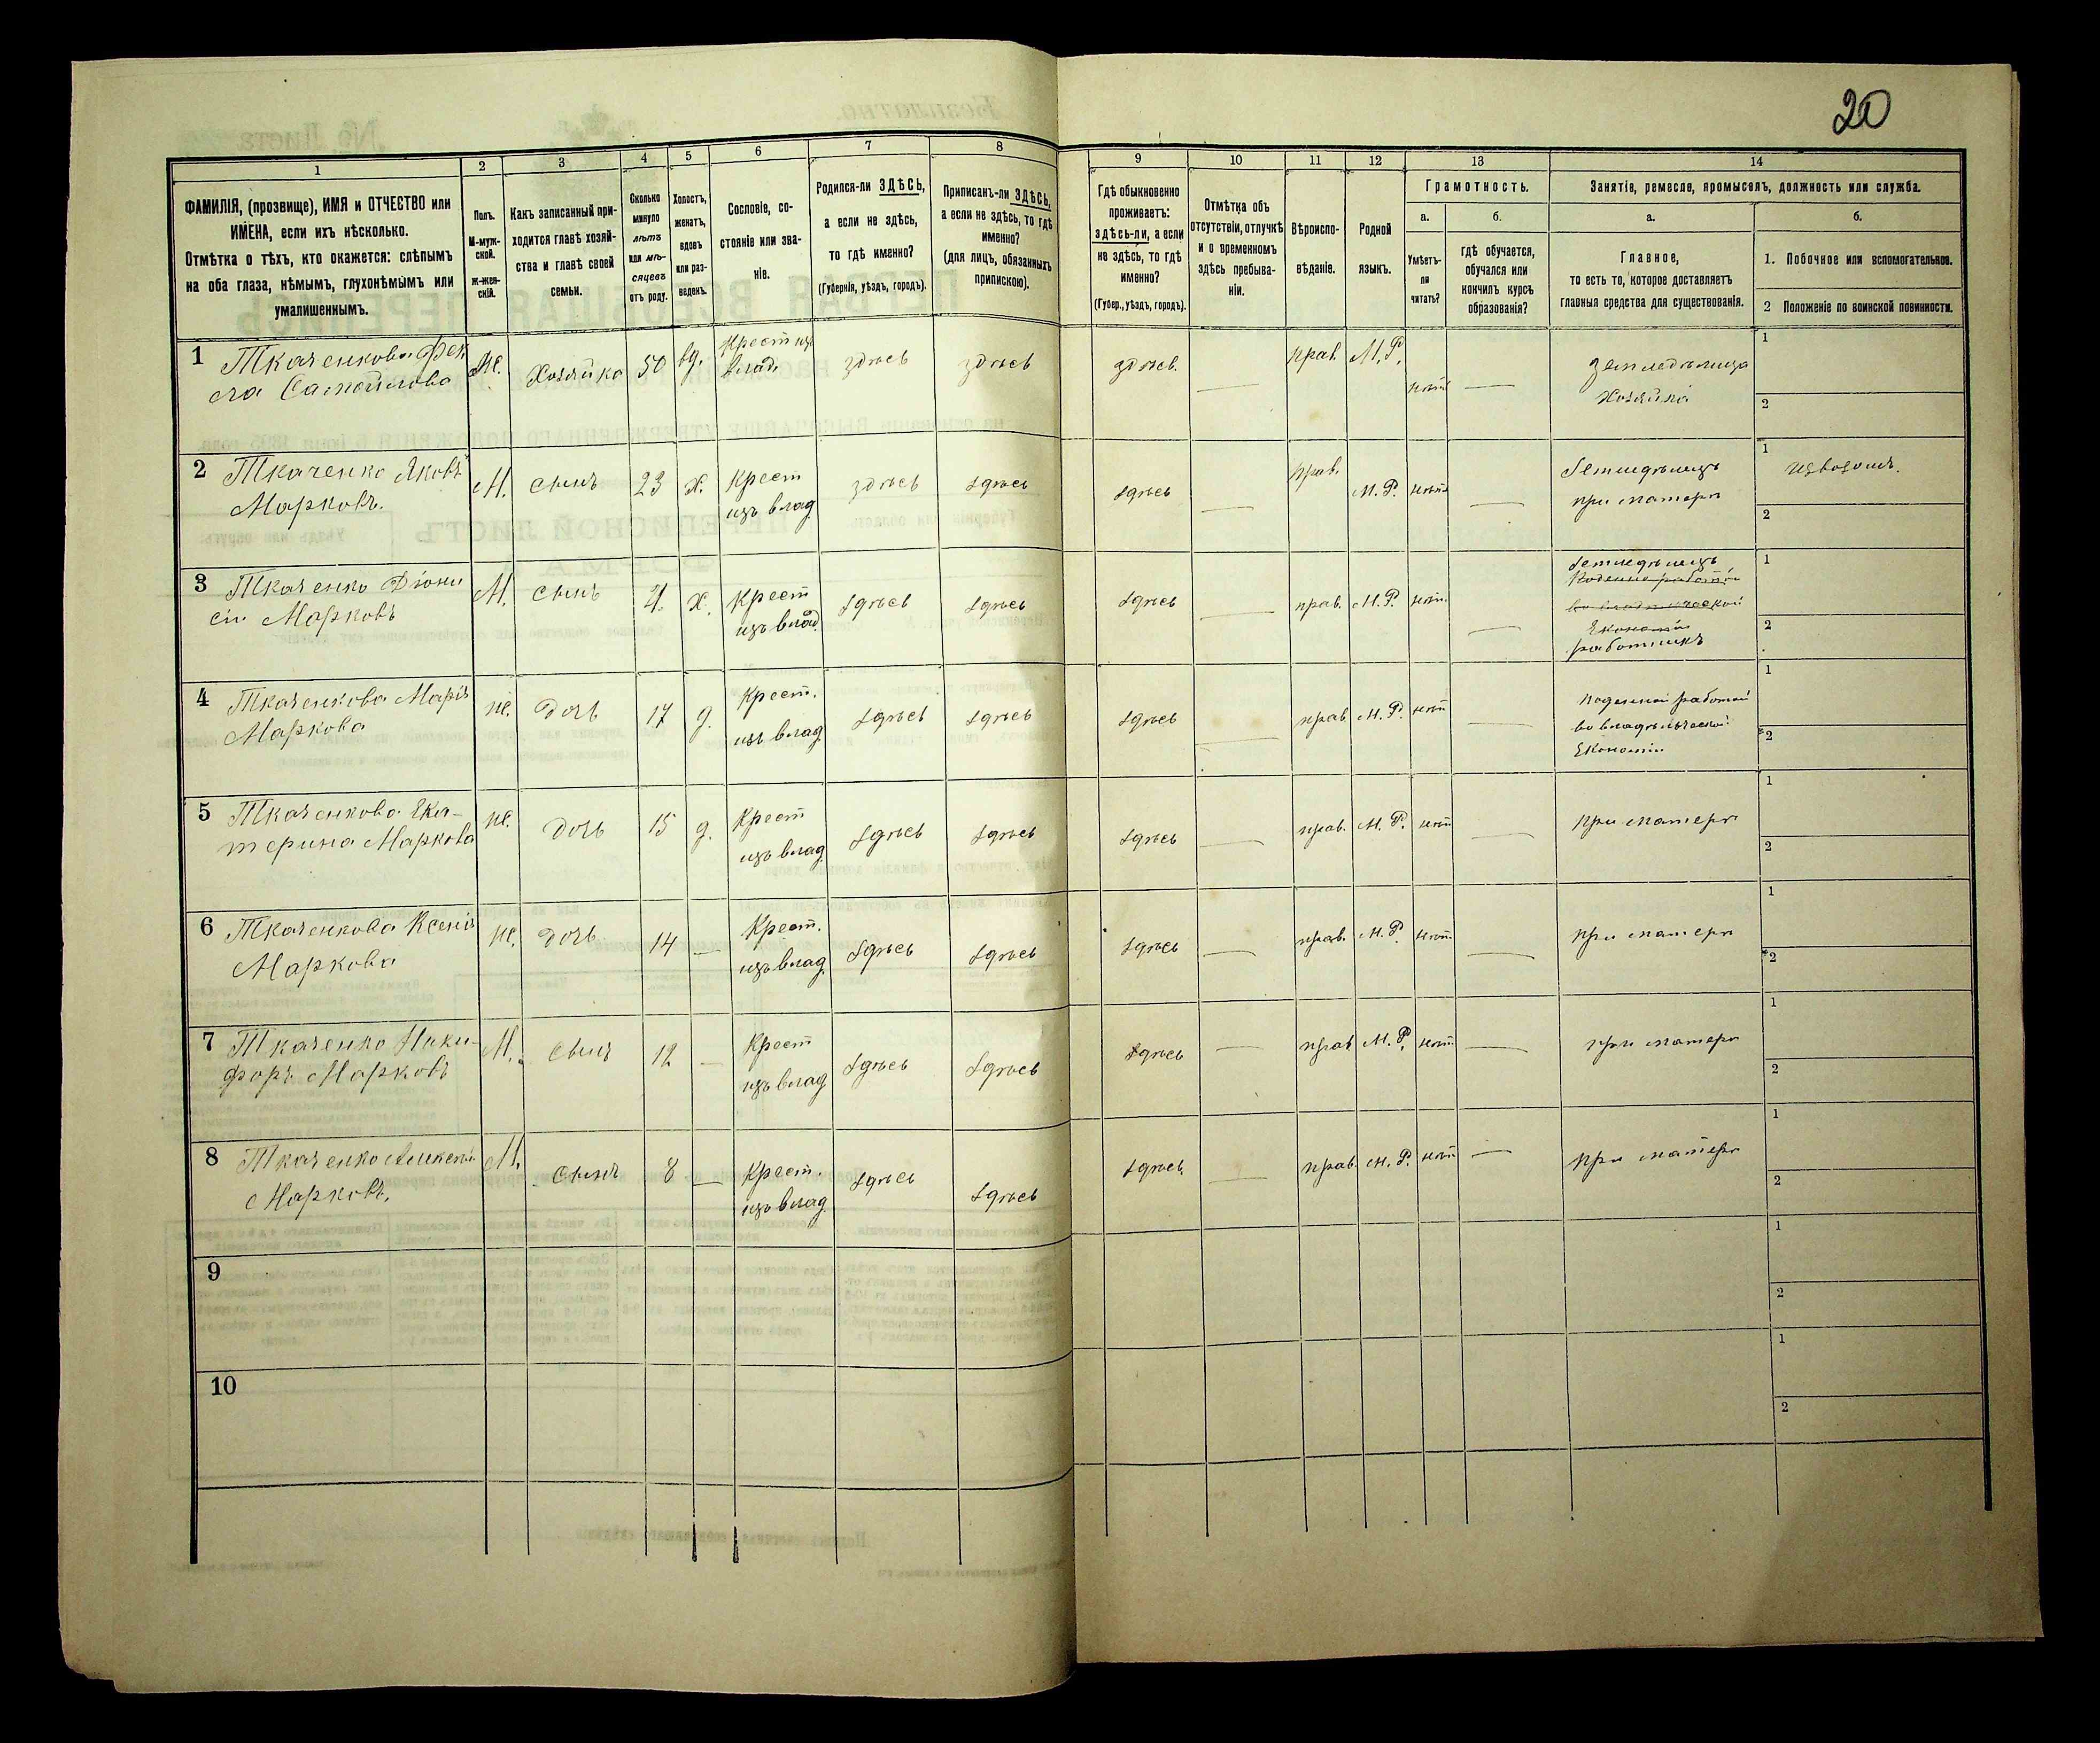 20
1 2 3 4 5 6 7 8 9 10 11 12 13 14
ФАМИЛІЯ, (прозвище), ИМЯ и ОТЧЕСТВО или
ИМЕНА, если ихъ нѣсколько.
Отмѣтка о тѣхъ, кто окажется: слѣпымъ
на оба глаза, нѣмымъ, глухонѣмымъ или
умалишеннымъ.
Полъ.
М-муж-
ской.
Ж-жен-
скій.
Какъ записанный при-
ходится главѣ хозяй-
ства и главѣ своей
семьи.
Сколько
минуло
лѣтъ
или мѣ-
сяцевъ
отъ роду.
Холостъ,
женатъ,
вдовъ
или раз-
веденъ.
Сословіе, со-
стояніе или зва-
ніе.
Родился-ли ЗДѢСЬ,
а если не здѣсь,
то гдѣ именно?
(Губернія, уѣздъ, городъ).
Приписанъ-ли ЗДѢСЬ,
а если не здѣсь, то гдѣ
именно?
(для лицъ, обязанныхъ
припискою).
Гдѣ обыкновенно
проживаетъ:
здѣсь-ли, а если
не здѣсь, то гдѣ
именно?
(Губер., уѣздъ, городъ).
Отмѣтка объ
отсутствіи, отлучкѣ
и о временномъ
здѣсь пребыва-
ніи.
Вѣроиспо-
вѣданіе.
Родной
языкъ.
Грамотность.
а.
Умѣетъ-
ли
читать?
б.
гдѣ обучается,
обучался или
кончилъ курсъ
образованія?
Занятіе, ремесло, промыселъ, должность или служба.
а.
Главное,
то есть то, которое доставляетъ
главныя средства для существованія.
б.
1. Побочное или вспомогательное.
2 Положеніе по воинской повинности.
1 Ткаченкова Фек
ла Самойлова
Ж. Хозяйка 50 вд.
Крест изъ
влад.
здѣсь здѣсь здѣсь. — прав. М.Р. нѣтъ —
земледѣлица
хозяйка
1
2
2 Ткаченко Яковъ
Марковъ.
М. сынъ 23 х.
Крест
изъ влад
здѣсь здѣсь здѣсь — прав. М.Р. нѣтъ —
Земледѣлецъ
при матери
1 извозомъ.
2
3 Ткаченко Діони
сій Марковъ
М. сынъ 21. х.
Крест
изъ влад.
здѣсь здѣсь здѣсь — прав. М.Р. нѣтъ —
Земледѣлецъ
Экономіи
работникъ
1
2
4 Ткаченкова Марія
Маркова
Ж. Дочь 17 д.
Крест.
изъ влад.
здѣсь здѣсь здѣсь — прав М.Р. нѣтъ —
поденной работой
во владѣльческой
Економіи
1
2
5 Ткаченкова Ека-
терина Маркова
Ж. Дочь 15 д.
Крест
изъ влад.
здѣсь здѣсь здѣсь — прав. М.Р. нѣтъ —
при матери
1
2
6 Ткаченкова Ксенія
Маркова
Ж. Дочь 14 —
Крест.
изъ влад.
здѣсь здѣсь здѣсь — прав. М.Р. нѣтъ. —
при матери
1
2
7 Ткаченко Ники-
форъ Марковъ
М. Сынъ 12 —
Крест
изъ влад
здѣсь здѣсь здѣсь — прав М.Р. нѣтъ. —
при матери
1
2
8 Ткаченко Алексѣй
Марковъ.
М. Сынъ 8 —
Крест.
изъ влад.
здѣсь здѣсь здѣсь. — прав. М.Р. нѣтъ —
при матери
1
2
9
1
2
10
1
2